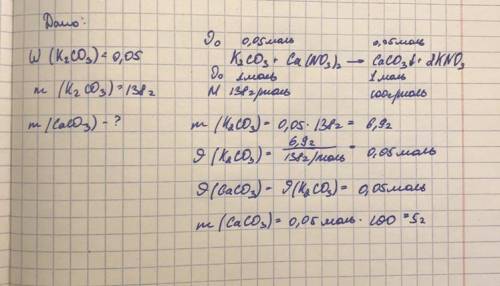 Дано:
W(K₂CO₃) = 0,05
m(K₂CO₃) = 138г
m(CaCO₃) - ?
υ₀ 0,05моль 0,05моль
K₂CO₃ + Ca(NO₃)₂ → CaCO₃↓ + 2KNO₃
υ₀ 1моль 1моль
M 138г/моль 100г/моль
m(K₂CO₃) = 0,05 · 138г = 6,9г
υ(K₂CO₃) = 6,9г / 138г/моль = 0,05моль
υ(CaCO₃) = υ(K₂CO₃) = 0,05моль
m(CaCO₃) = 0,05моль · 100 = 5г